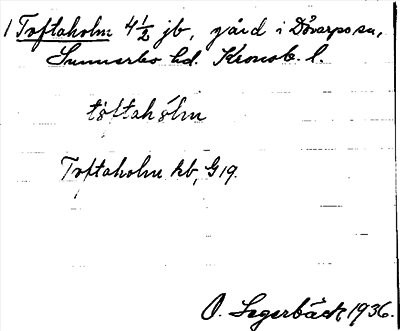 1 Toftaholm 4½ jb, gård i Dörarps sn,
Sunnerbo hd. Kronob. l.
töftahólm
Toftaholm kb, G 19.
O. Segerbäck 1936.